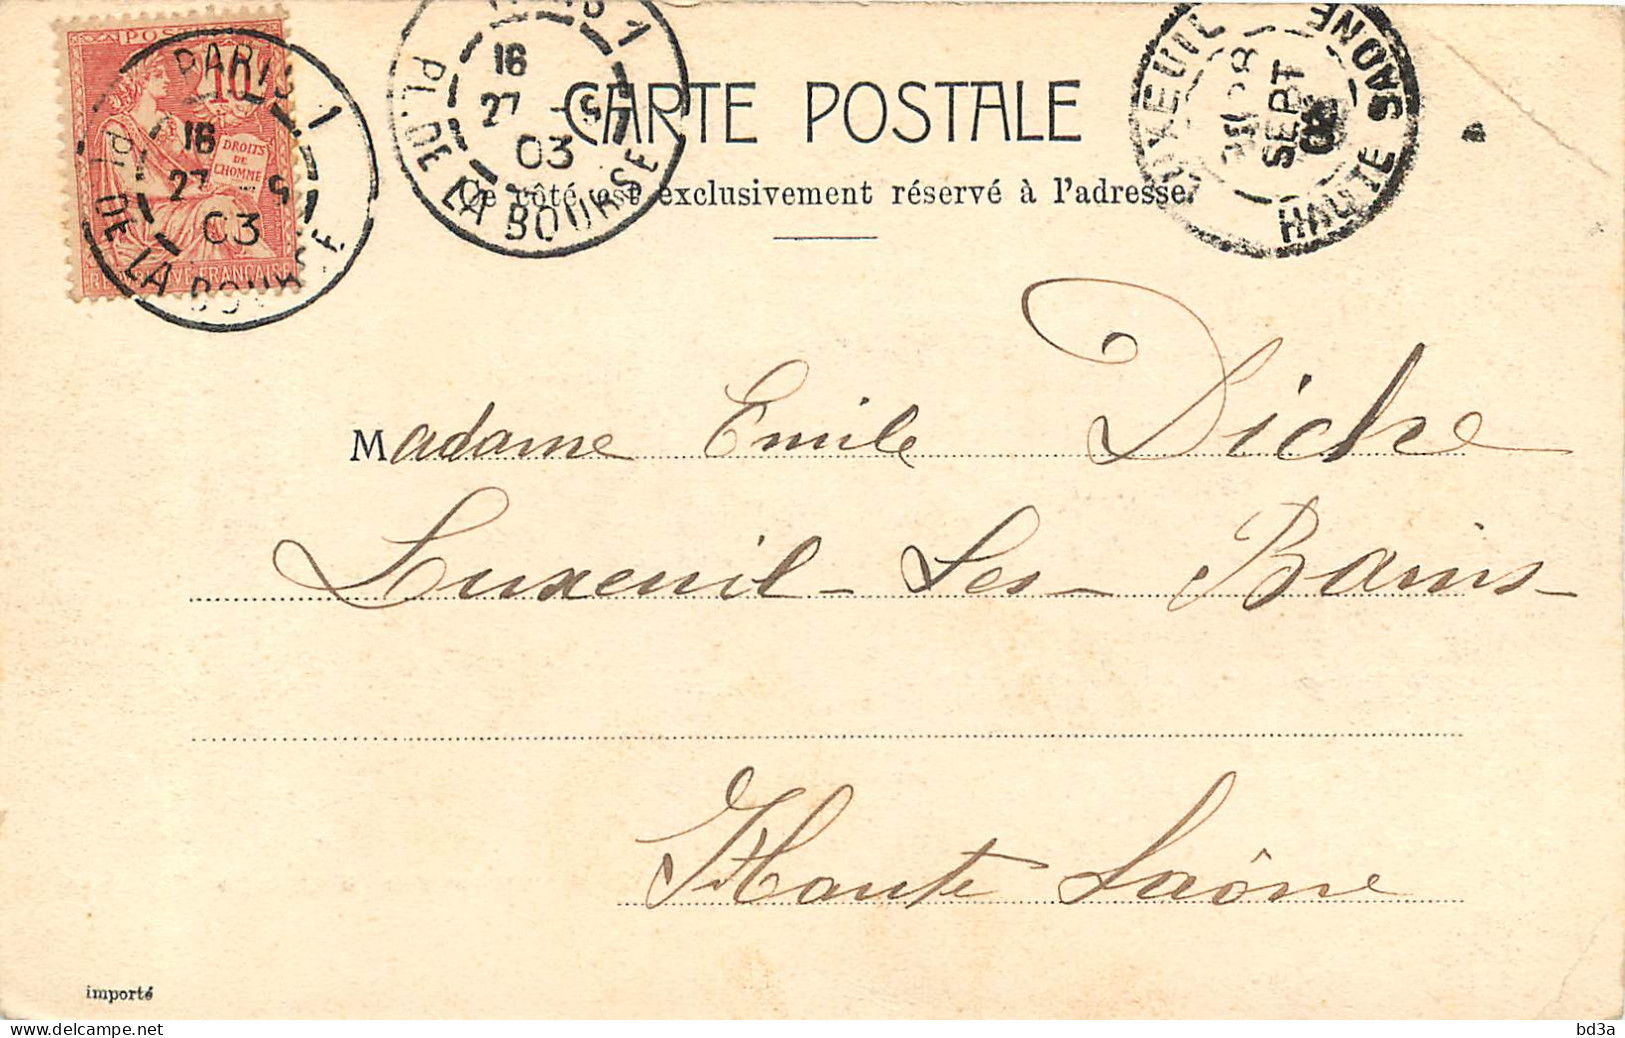 POSTES
10
DROITS
DE
L'HOMME
REPUBLIQUE FRANÇAISE
PARIS 1
16
27 -9
03
PL. DE LA BOURSE
16
27 -9
03
PL. DE LA BOURSE
LUXEUIL
28
SEPT
03
HAUTE SAONE
CARTE POSTALE
Ce côté est exclusivement réservé à l'adresse.
Madame Emile Diche
Luxeuil-Les-Bains-
Haute Saône
importé
bd3a